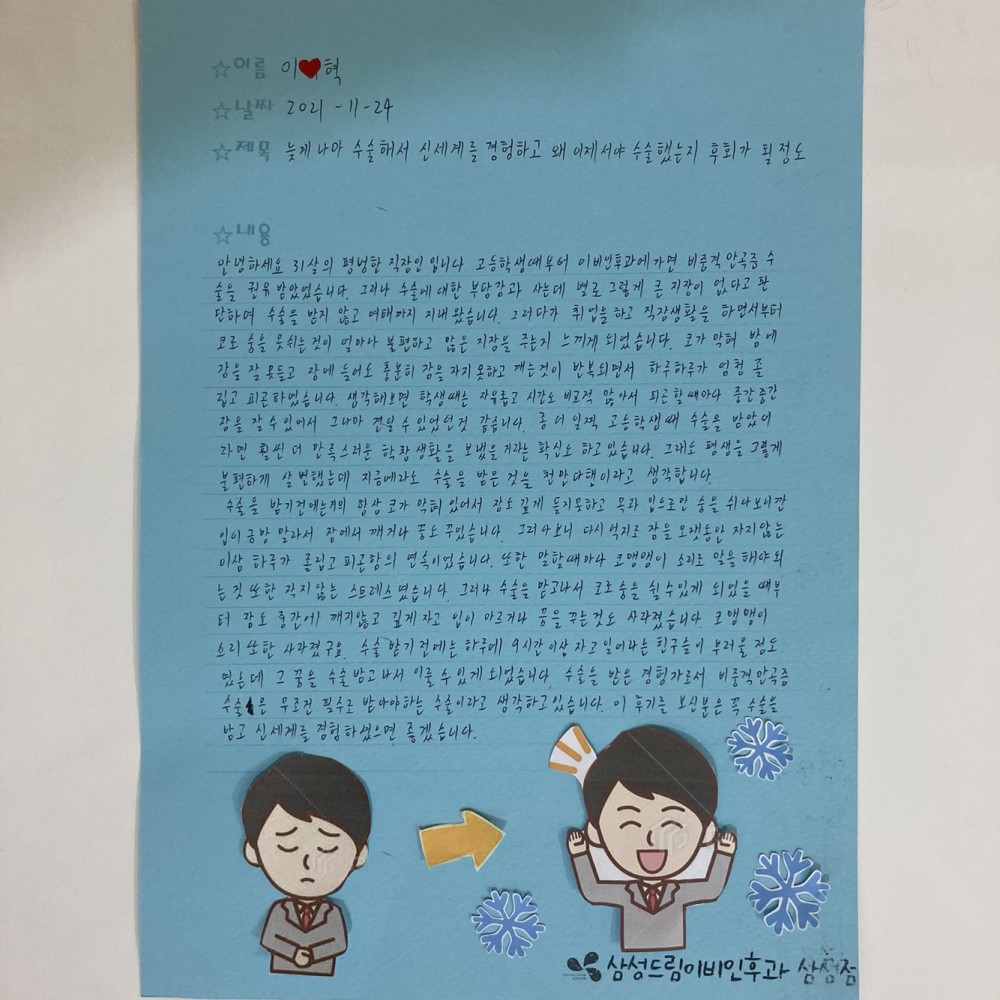 ☆이름 이♥혁
☆날짜 2021-11-24
☆제목 늦게나마 수술해서 신세계를 경험하고 왜 이제서야 수술했는지 후회가 될 정도
☆내용
안녕하세요 31살의 평범한 직장인 입니다 고등학생때부터 이비인후과에가면 비중격 만곡증 수
술을 권유 받았었습니다. 그러나 수술에 대한 부담감과 사는데 별로 그렇게 큰 지장이 없다고 판
단하여 수술을 받지 않고 여태까지 지내왔습니다. 그러다가 취업을하고 직장생활을 하면서부터
코로 숨을 못쉬는것이 얼마나 불편하고 많은 지장을 주는지 느끼게 되었습니다. 코가 막혀 밤에
잠을 잘 못들고 잠에 들어도 충분히 잠을 자지 못하고 깨는것이 반복되면서 하루하루가 엄청 졸
립고 피곤하였습니다. 생각해보면 학생때는 자유롭고 시간도 비교적 많아서 피곤할때마다 중간중간
잠을 잘 수 있어서 그나마 견딜 수 있었던것 같습니다. 좀 더 일찍 고등학생때 수술을 받았더
라면 훨씬 더 만족스러운 학창생활을 보냈을거라는 확신도 하고있습니다. 그래도 평생을 그렇게
불편하게 살 뻔했는데 지금에라도 수술을 받은 것을 천만다행이라고 생각합니다.
수술을 받기전에는거의 항상 코가 막혀 있어서 잠도 깊게 들지못하고 목과 입으로만 숨을 쉬다보니깐
입이 금방 말라서 잠에서 깨거나 꿈도 꾸었습니다. 그러다보니 다시 억지로 잠을 오랫동안 자지않는
이상 하루가 졸립고 피곤함의 연속이었습니다. 또한 말할때마다 코맹맹이 소리로 말을 해야되
는것 또한 작지않는 스트레스였습니다. 그러나 수술을 받고나서 코로 숨을 쉴수있게 되었을 때부
터 잠도 중간에 깨지않고 깊게 자고 입이 마르거나 꿈을 꾸는것도 사라졌습니다 코맹맹이
소리 또한 사라졌구요. 수술 받기 전에는 하루에 9시간이상 자고 일어나는 친구들이 부러울 정도
였는데 그 꿈을 수술 받고나서 이룰 수 있게 되었습니다. 수술을 받은 경험자로서 비중격만곡증
수술은 무조건 필수로 받아야하는 수술이라고 생각하고있습니다. 이 후기를 보신분은 꼭 수술을
받고 신세계를 경험하셨으면 좋겠습니다.
삼성드림이비인후과 삼성점